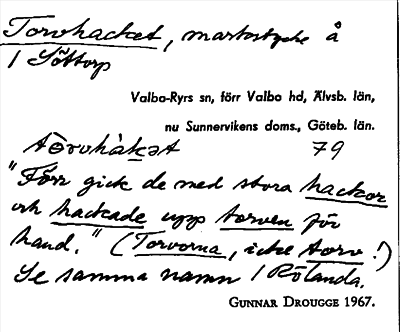 Torvhacket, markstycke å
/ Söttorp
Valbo-Ryrs sn, förr Valbo hd, Älvsb. län,
nu Sunnervikens doms., Göteb. län.
79
"Förr gick de med stora hackor
och hackade upp torven för
hand." (Torvorna, icke torv!)
Se samma namn / Rölanda.
GUNNAR DROUGGE 1967.